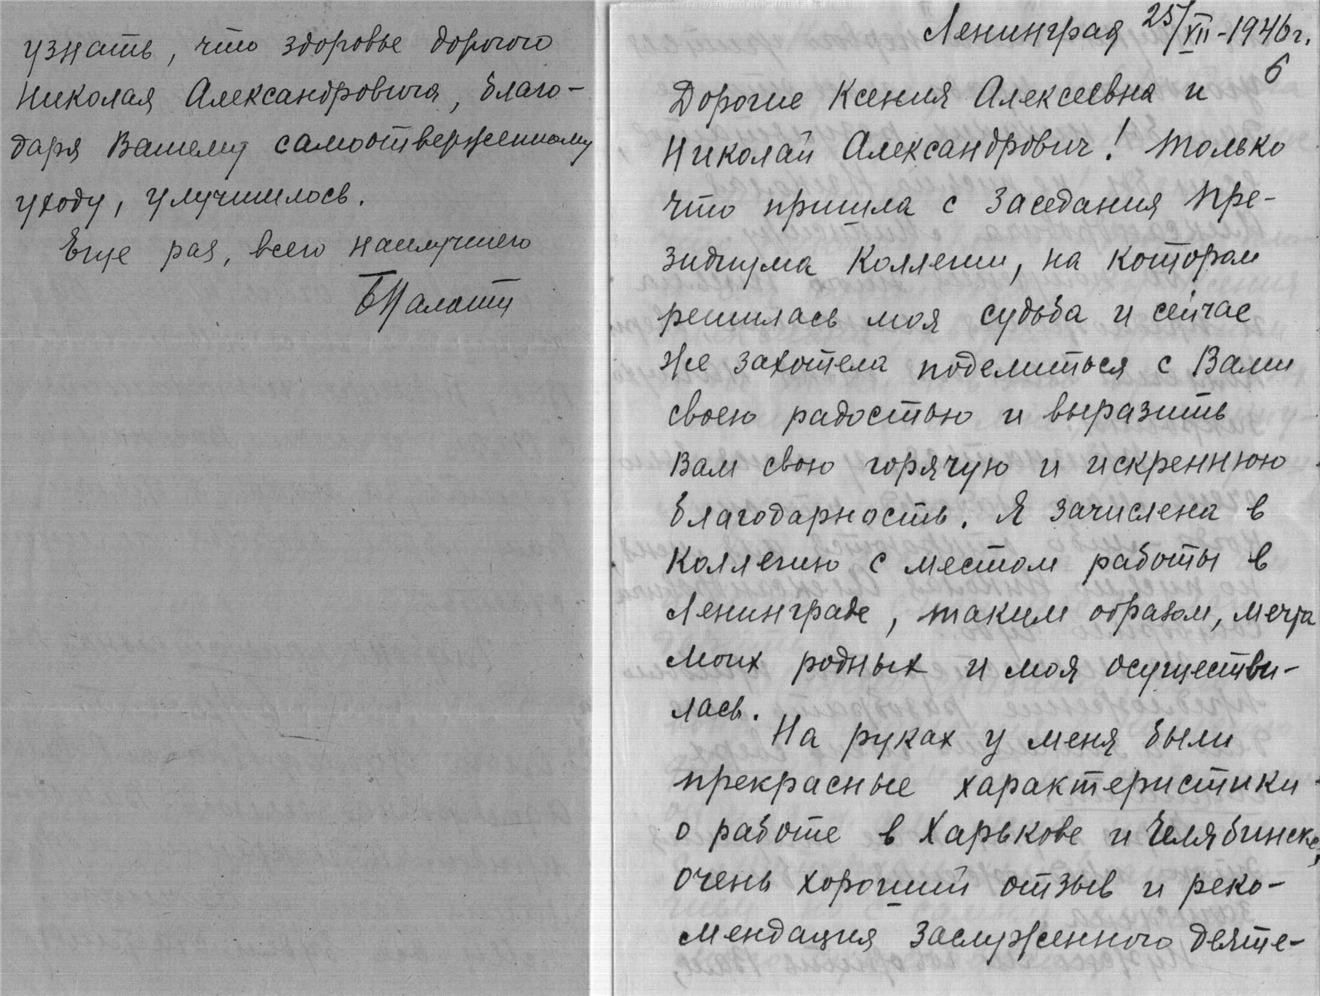 узнать, что здоровье дорогого
Николая Александровича, благо-
даря Вашему самоотверженному
уходу, улучшилось.
Еще раз, всего наилучшего
Ленинград 25/VII-1946г.
6
Дорогие Ксения Алексеевна и
Николай Александрович! Только
что пришла с заседания Пре-
зидиума Коллегии, на котором
решилась моя судьба и сейчас
же захотела поделиться с Вами
своею радостью и выразить
Вам свою горячую и искреннюю
благодарность. Я зачислена в
Коллегию с местом работы в
Ленинграде, таким образом, мечта
моих родных и моя осуществи-
лась.
На руках у меня были
прекрасные характеристики
о работе в Харькове и Челябинске,
очень хороший отзыв и реко-
мендация Заслуженного деяте-